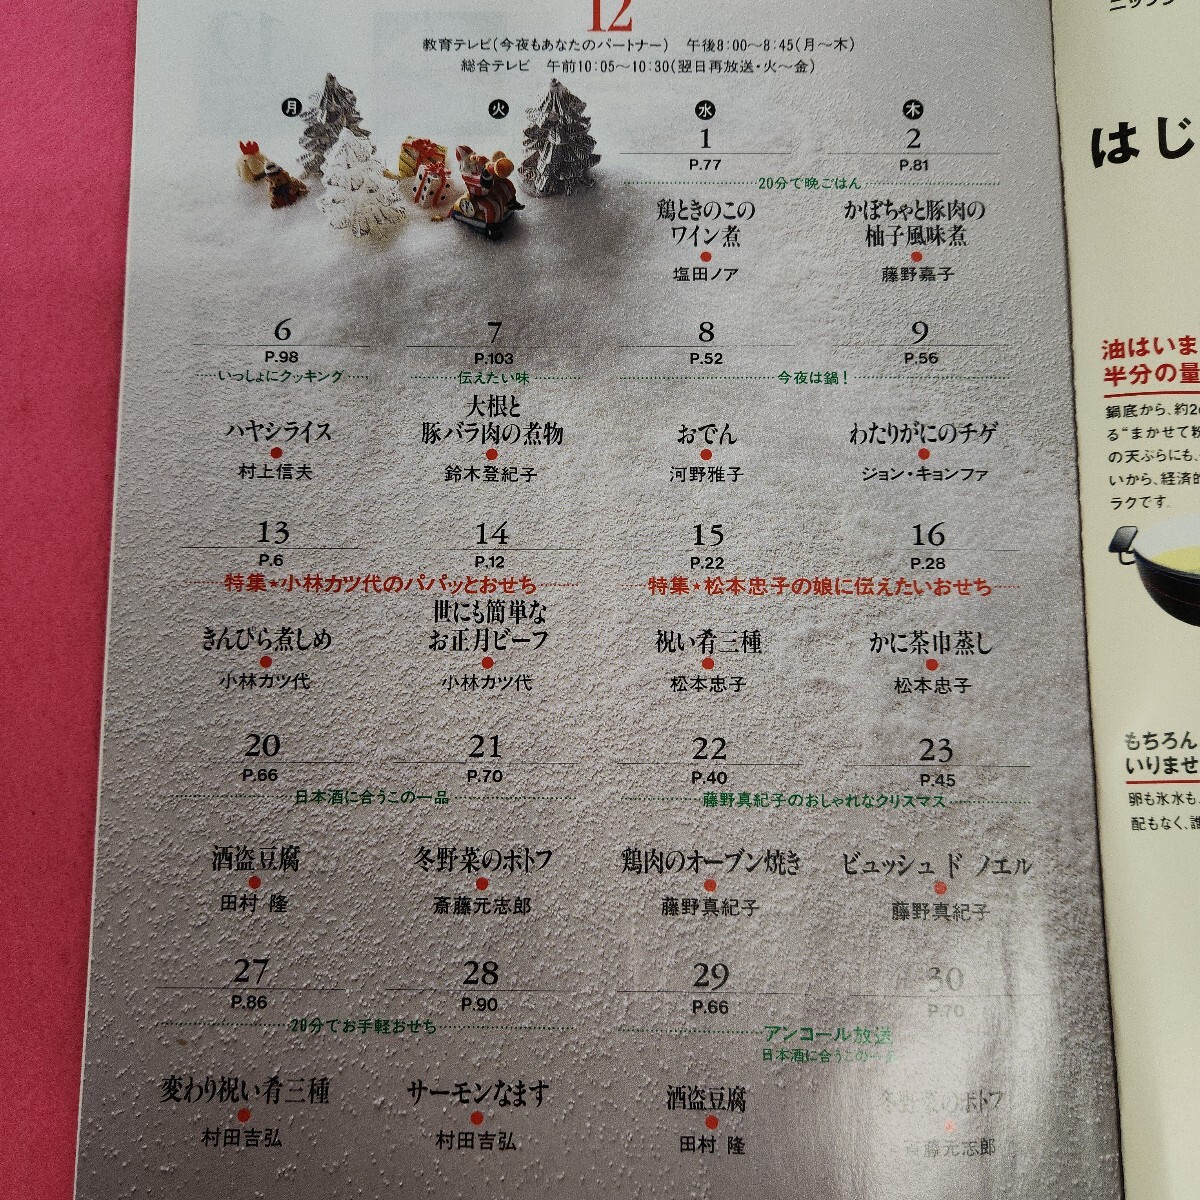 12
教育テレビ(今夜もあなたのパートナー) 午後8:00〜8:45(月〜木)
総合テレビ 午前10:05〜10:30(翌日再放送・火〜金)
月 火 水 木
1
P.77
2
P.81
20分で晩ごはん
鶏ときのこの
ワイン煮
塩田ノア
かぼちゃと豚肉の
柚子風味煮
藤野嘉子
6
P.98
いっしょにクッキング
ハヤシライス
村上信夫
7
P.103
伝えたい味
大根と
豚バラ肉の煮物
鈴木登紀子
8
P.52
9
P.56
今夜は鍋!
おでん
河野雅子
わたりがにのチゲ
ジョン・キョンファ
13
P.6
14
P.12
特集★小林カツ代のパパッとおせち
きんぴら煮しめ
小林カツ代
世にも簡単な
お正月ビーフ
小林カツ代
15
P.22
16
P.28
特集★松本忠子の娘に伝えたいおせち
祝い肴三種
松本忠子
かに茶巾蒸し
松本忠子
20
P.66
21
P.70
日本酒に合うこの一品
酒盗豆腐
田村 隆
冬野菜のポトフ
斎藤元志郎
22
P.40
23
P.45
藤野真紀子のおしゃれなクリスマス
鶏肉のオーブン焼き
藤野真紀子
ビュッシュ ド ノエル
藤野真紀子
27
P.86
28
P.90
20分でお手軽おせち
変わり祝い肴三種
村田吉弘
サーモンなます
村田吉弘
29
P.66
30
P.70
アンコール放送
日本酒に合うこの一品
酒盗豆腐
田村 隆
冬野菜のポトフ
斎藤元志郎
はじ
油はいま
半分の量
鍋底から、約2
る“まかせて
の天ぷらにも、
いから、経済的
ラクです。
もちろん
いりませ
卵も氷水も、
配もなく、誰